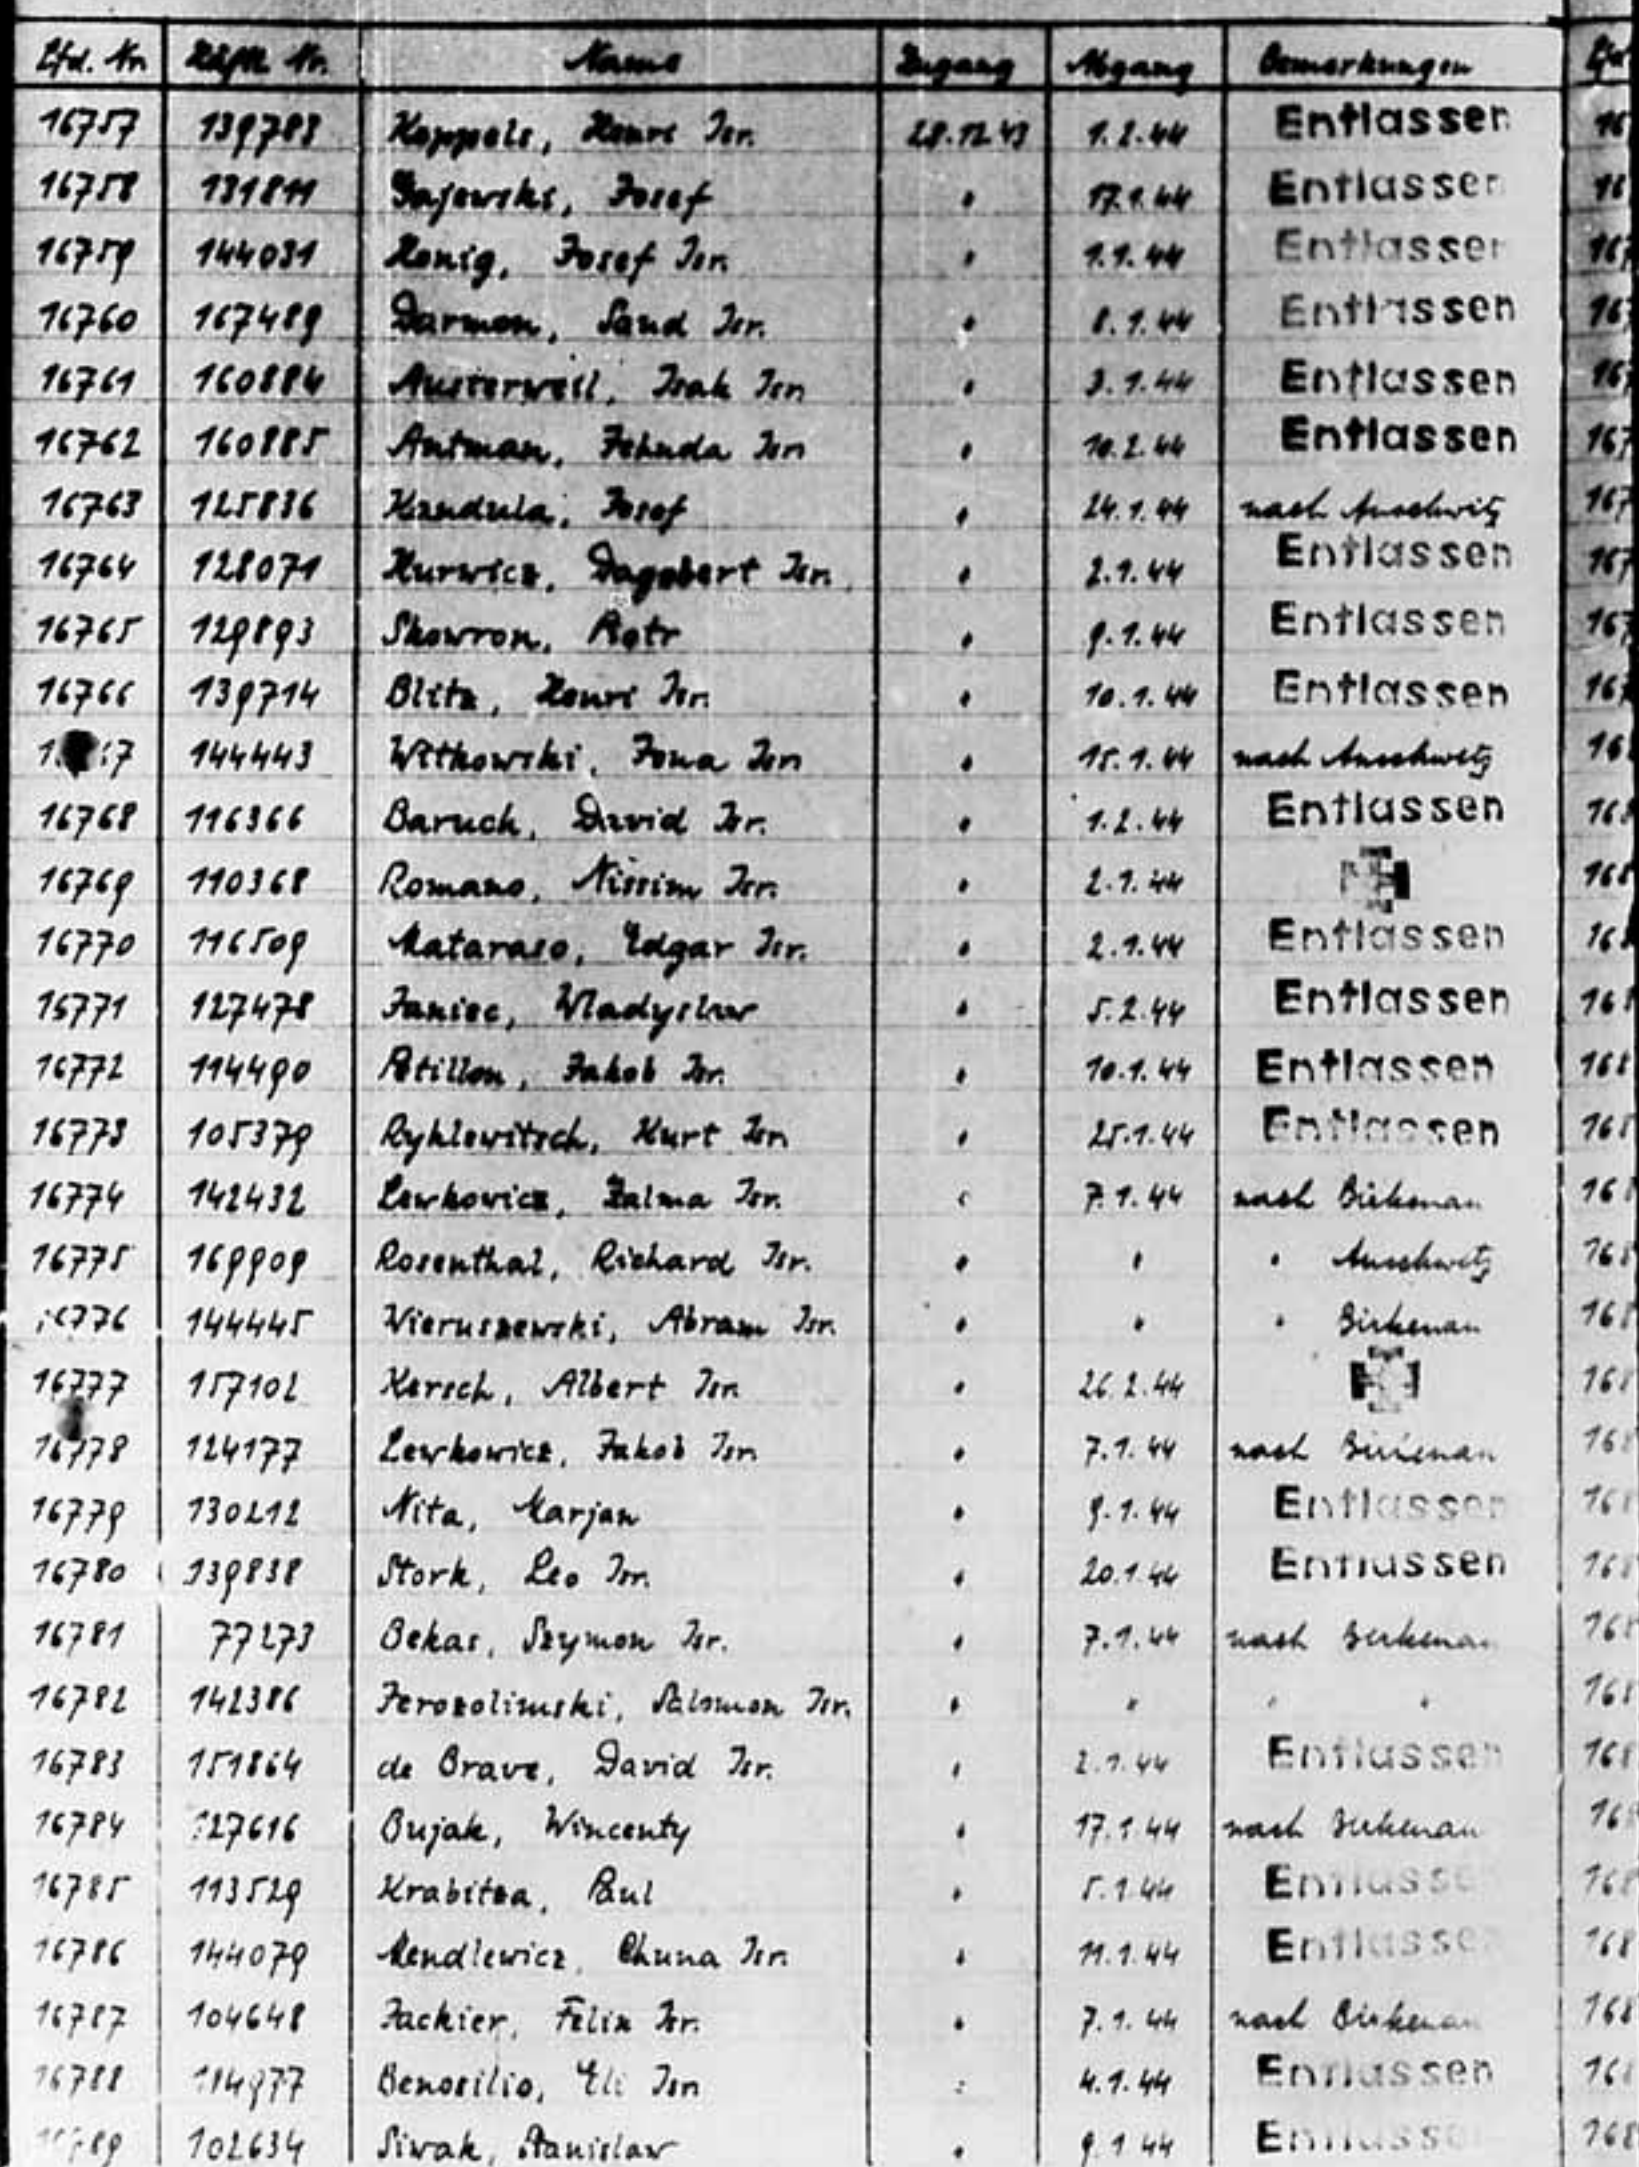 Lfd. Nr. Häftl. Nr. Name Zugang Abgang Bemerkungen Lfd
16757 139783 Koppels, Henri Isr. 28.12.43 1.2.44 Entlassen 16
16758 131811 Gajewski, Josef " 17.1.44 Entlassen 16
16759 144031 Honig, Josef Isr. " 1.1.44 Entlassen 167
16760 167489 Darmon, Saud Isr. " 8.1.44 Entlassen 167
16761 160884 Austerweil, Isak Isr. " 3.1.44 Entlassen 167
16762 160885 Autman, Jehuda Isr. " 10.2.44 Entlassen 167
16763 125836 Kandula, Josef " 24.1.44 nach Auschwitz 167
16764 128071 Hurwicz, Dagobert Isr. " 2.1.44 Entlassen 167
16765 129893 Skowron, Piotr " 9.1.44 Entlassen 167
16766 139714 Blitz, Henri Isr. " 10.1.44 Entlassen 167
144443 Witkowski, Jona Isr. " 15.1.44 nach Auschwitz 16
16768 116366 Baruch, David Isr. " 1.2.44 Entlassen 168
16769 110368 Romano, Nissim Isr. " 2.1.44 168
16770 116509 Mataraso, Edgar Isr. " 2.1.44 Entlassen 168
16771 127478 Janiec, Wladyslaw " 5.2.44 Entlassen 168
16772 114490 Potillon, Jakob Isr. " 10.1.44 Entlassen 168
16773 105379 Ryklewitsch, Kurt Isr. " 25.1.44 Entlassen 168
16774 142432 Lewkowicz, Zalma Isr. " 7.1.44 nach Birkenau 168
16775 169909 Rosenthal, Richard Isr. " " " Auschwitz 168
144445 Wieruszewski, Abram Isr. " " " Birkenau 168
16777 157102 Kersch, Albert Isr. " 26.2.44 168
16778 124177 Lewkowicz, Jakob Isr. " 7.1.44 nach Birkenau 168
16779 130212 Nita, Marjan " 9.1.44 Entlassen 168
16780 139838 Stork, Leo Isr. " 20.1.44 Entlassen 168
16781 77273 Bekas, Szymon Isr. " 7.1.44 nach Birkenau 168
16782 142386 Jerozolimski, Salomon Isr. " " " " 168
16783 151864 de Brave, David Isr. " 2.1.44 Entlassen 168
16784 127616 Bujak, Wincenty " 17.1.44 nach Birkenau 168
16785 113529 Krabitza, Paul " 5.1.44 Entlassen 168
16786 144079 Mendlewicz, Chuna Isr. " 11.1.44 Entlassen 168
16787 104648 Jackier, Felix Isr. " 7.1.44 nach Birkenau 168
16788 Benosilio, Eli Isr. " 4.1.44 Entlassen 168
102634 Siwak, Stanislaw " 9.1.44 Entlassen 168